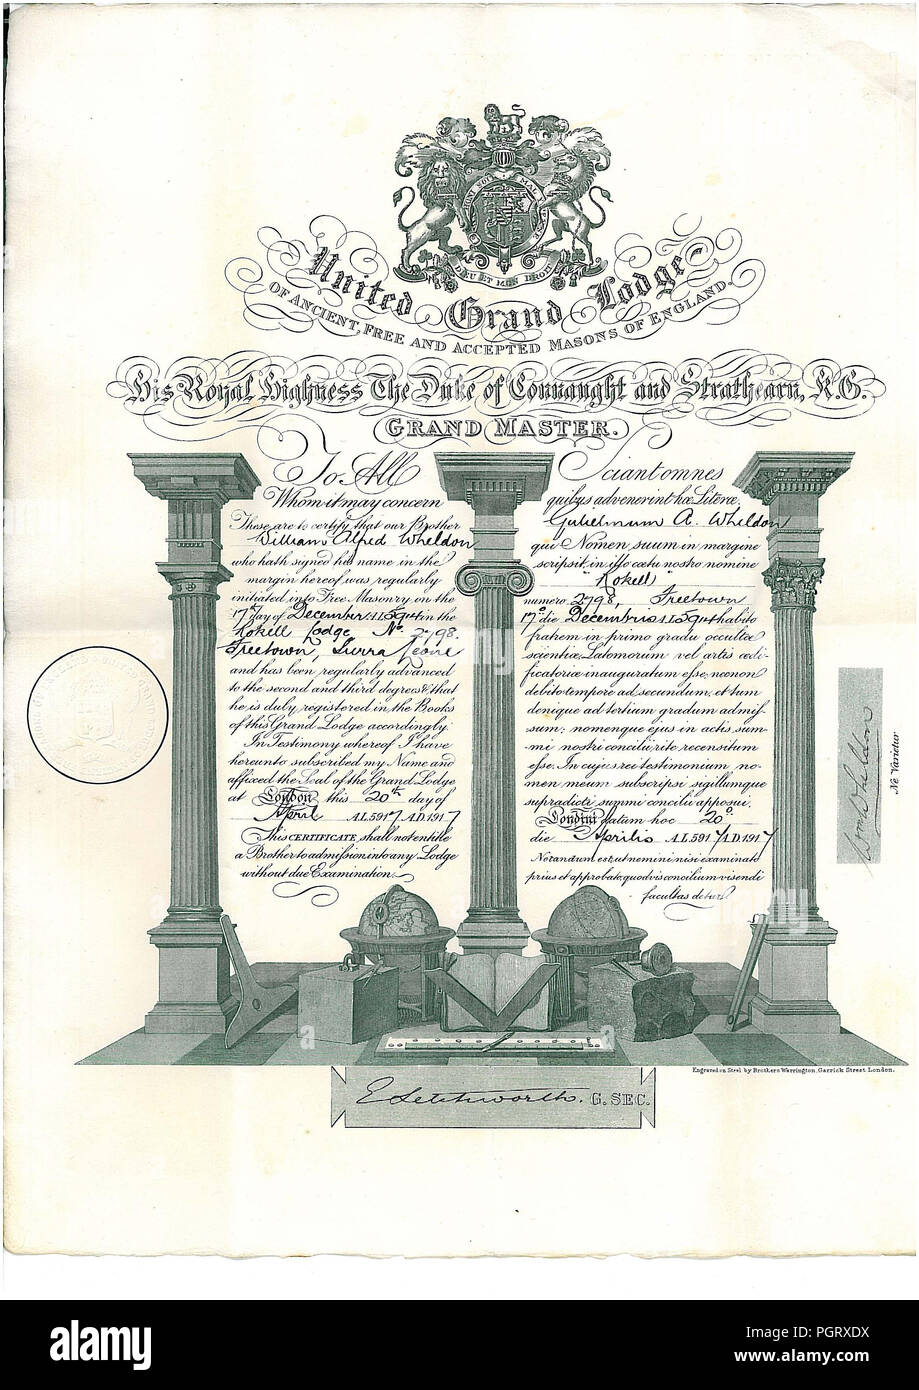 HONI SOIT QUI MAL Y PENSE
DIEU ET MON DROIT
United Grand Lodge
OF ANCIENT, FREE AND ACCEPTED MASONS OF ENGLAND.
His Royal Highness The Duke of Connaught and Strathearn, K.G.
GRAND MASTER.
To All
Whom it may concern
These are to certify that our Brother
William Alfred Wheldon
who hath signed his name in the
margin hereof was regularly
initiated into Free Masonry on the
17th day of December A.L. 5914 in the
Rokell Lodge No. 2798.
Freetown, Sierra Leone
and has been regularly advanced
to the second and third degrees & that
he is duly registered in the Books
of this Grand Lodge accordingly.
In Testimony whereof I have
hereunto subscribed my Name and
affixed the Seal of the Grand Lodge
at London this 20th day of
April A.L. 5917. A.D. 1917
This CERTIFICATE, shall not entitle
a Brother to admission into any Lodge
without due Examination.
Sciant omnes
quibus advenerint hæ Literæ,
Gulielmum A. Wheldon
qui Nomen suum in margine
scripsit, in isto cœtu nostro nomine
Rokell
numero 2798, Freetown
17o die Decembris A.L. 5914 habito
fratrem in primo gradu occultæ
scientiæ Latomorum vel artis ædi-
ficatoriæ inauguratum esse; necnon
debito tempore ad secundum, et tum
denique ad tertium gradum admis-
sum; nomenque ejus in actis sum-
mi nostri concilii rite recensitum
esse. In cujus rei testimonium no-
men meum subscripsi sigillumque
supradicti summi concilii apposui.
Londini datum hoc 20o
die Aprilis A.L. 5917 A.D. 1917
Notandum est, ut nemini nisi examinato
prius et approbato, quodvis concilium visendi
facultas detur.
Wm A Wheldon
Ne Varietur
Engraved on Steel by Brothers Warrington, Garrick Street London.
E Letchworth. G. SEC.
alamy
Image ID: PGRXDX
www.alamy.com